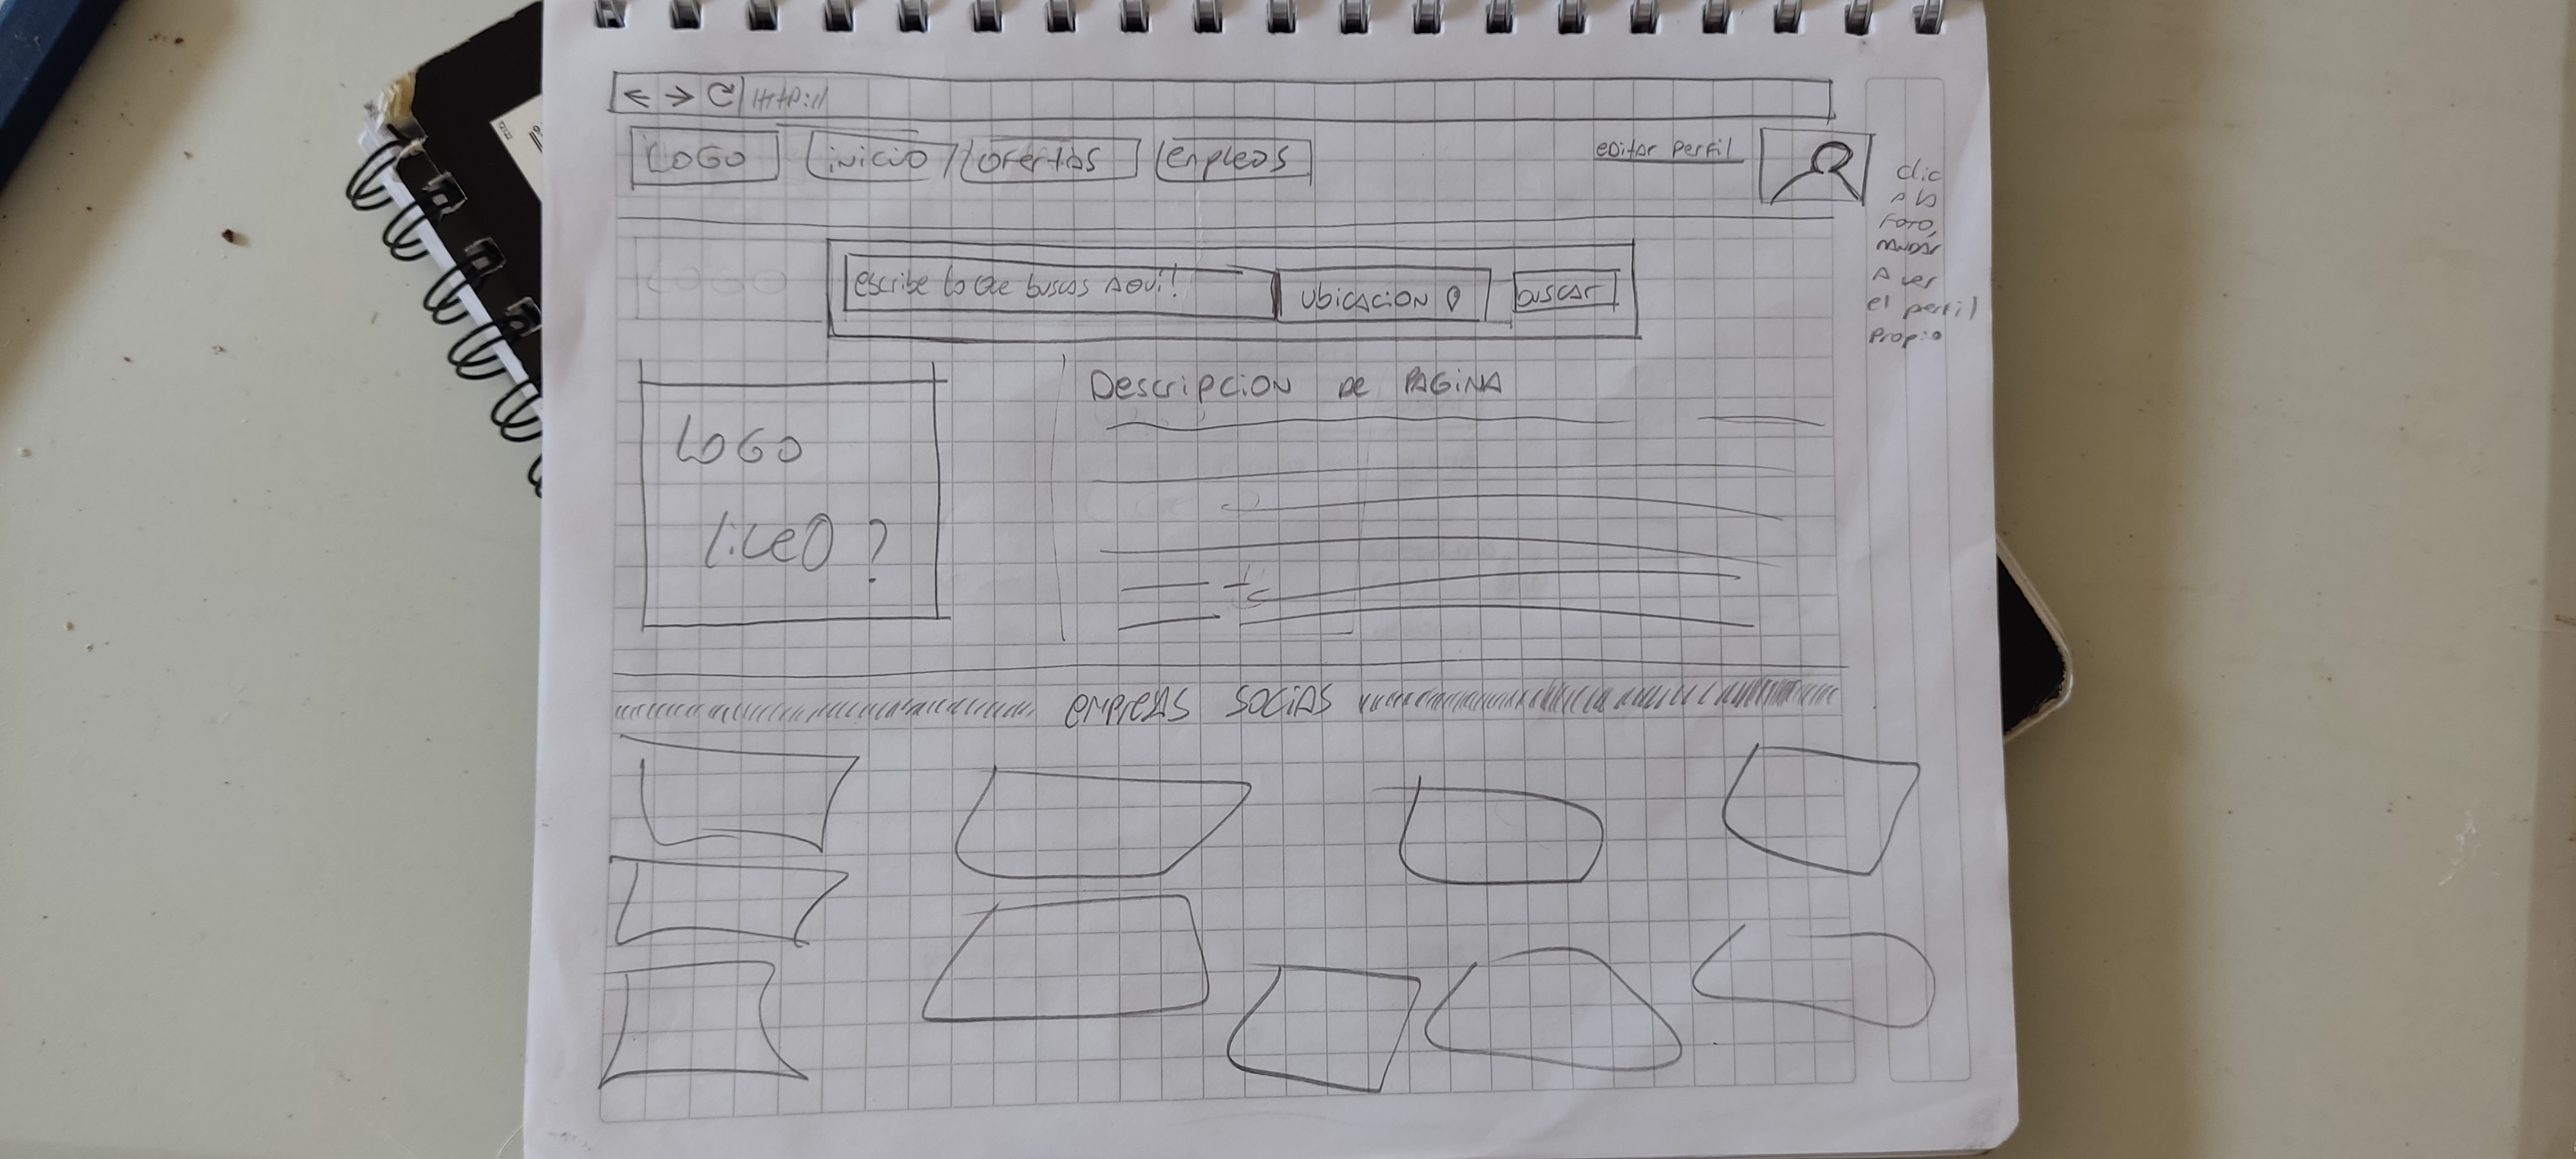 ← → C HTTP://
LOGO inicio ofertas empleos
editar perfil
clic
a la
Foto,
mandar
A ver
el perfil
propio
escribe lo que buscas AQUI! ubicacion buscar
LOGO
Descripcion de PAGINA
empresas socias